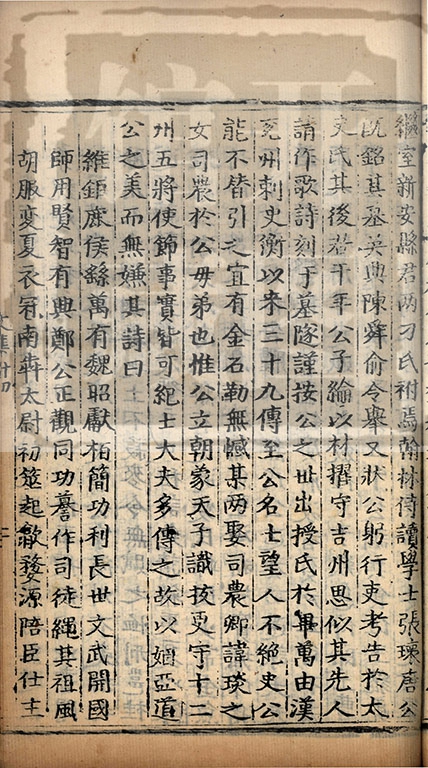 繼室新安縣君兩刁氏祔焉翰林侍讀學士張瓌唐公
既銘其墓吳興陳舜俞令舉又狀公躬行吏考告於太
史氏其後若干年公子綸以材擢守吉州思似其先人
請作歌詩刻于墓隧謹按公之世出授氏於畢萬由漢
兗州刺史衡以來三十九傳至公名士望人不絕史公
能不替引之宜有金石勒無憾某两娶司農卿諱琰之
女司農於公毋弟也惟公立朝蒙天子識拔更守十二
州五將使節事實皆可紀士大夫多傳之故以婣亞道
公之美而無嫌其詩曰
維鉅鹿侯繇萬有魏昭獻栢簡功利長世文武開國
師用賢智有典鄭公正觀同功謩作司徒繩其祖風
胡服変夏衣冠南犇太尉初筮起歙婺源陪臣仕主